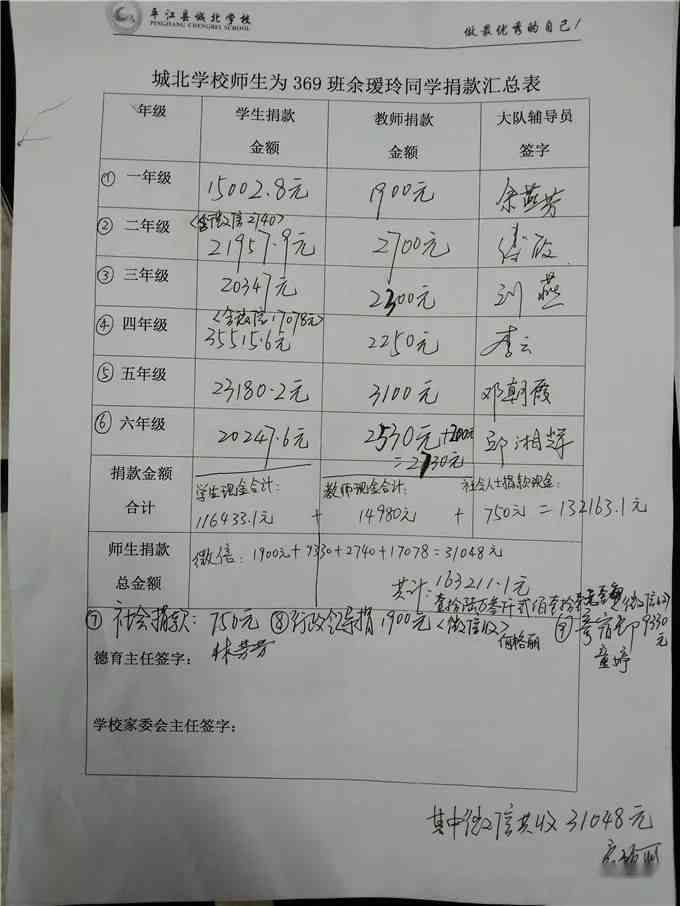 平江县城北学校
PINGJIANG CHENGBEI SCHOOL
做最优秀的自己!
城北学校师生为369班余瑷玲同学捐款汇总表
年级 学生捐款金额 教师捐款金额 大队辅导员签字
① 一年级 15002.8元 1900元 余燕芳
<含微信2740>
② 二年级 21957.9元 2700元
③ 三年级 20347元 2300元 刘燕
<含微信:17078元>
④ 四年级 35515.6元 2250元 李云
⑤ 五年级 23180.2元 3100元 邓朝霞
⑥ 六年级 20247.6元 2530元+200元 邱湘辉
=2730元
捐款金额合计 学生现金合计: 教师现金合计: 社会人士捐款现金:
116433.1元 + 14980元 + 750元 = 132163.1元
师生捐款总金额 微信: 1900元+9330+2740+17078=31048元
共计: 163211.1元
壹拾陆万叁仟贰佰壹拾壹元壹角
⑦ 社会捐款: 750元 ⑧ 行政领导捐1900元<微信收> ⑨ 9330元
何格丽
童婷
德育主任签字: 林芳芳
学校家委会主任签字:
其中微信共收31048元